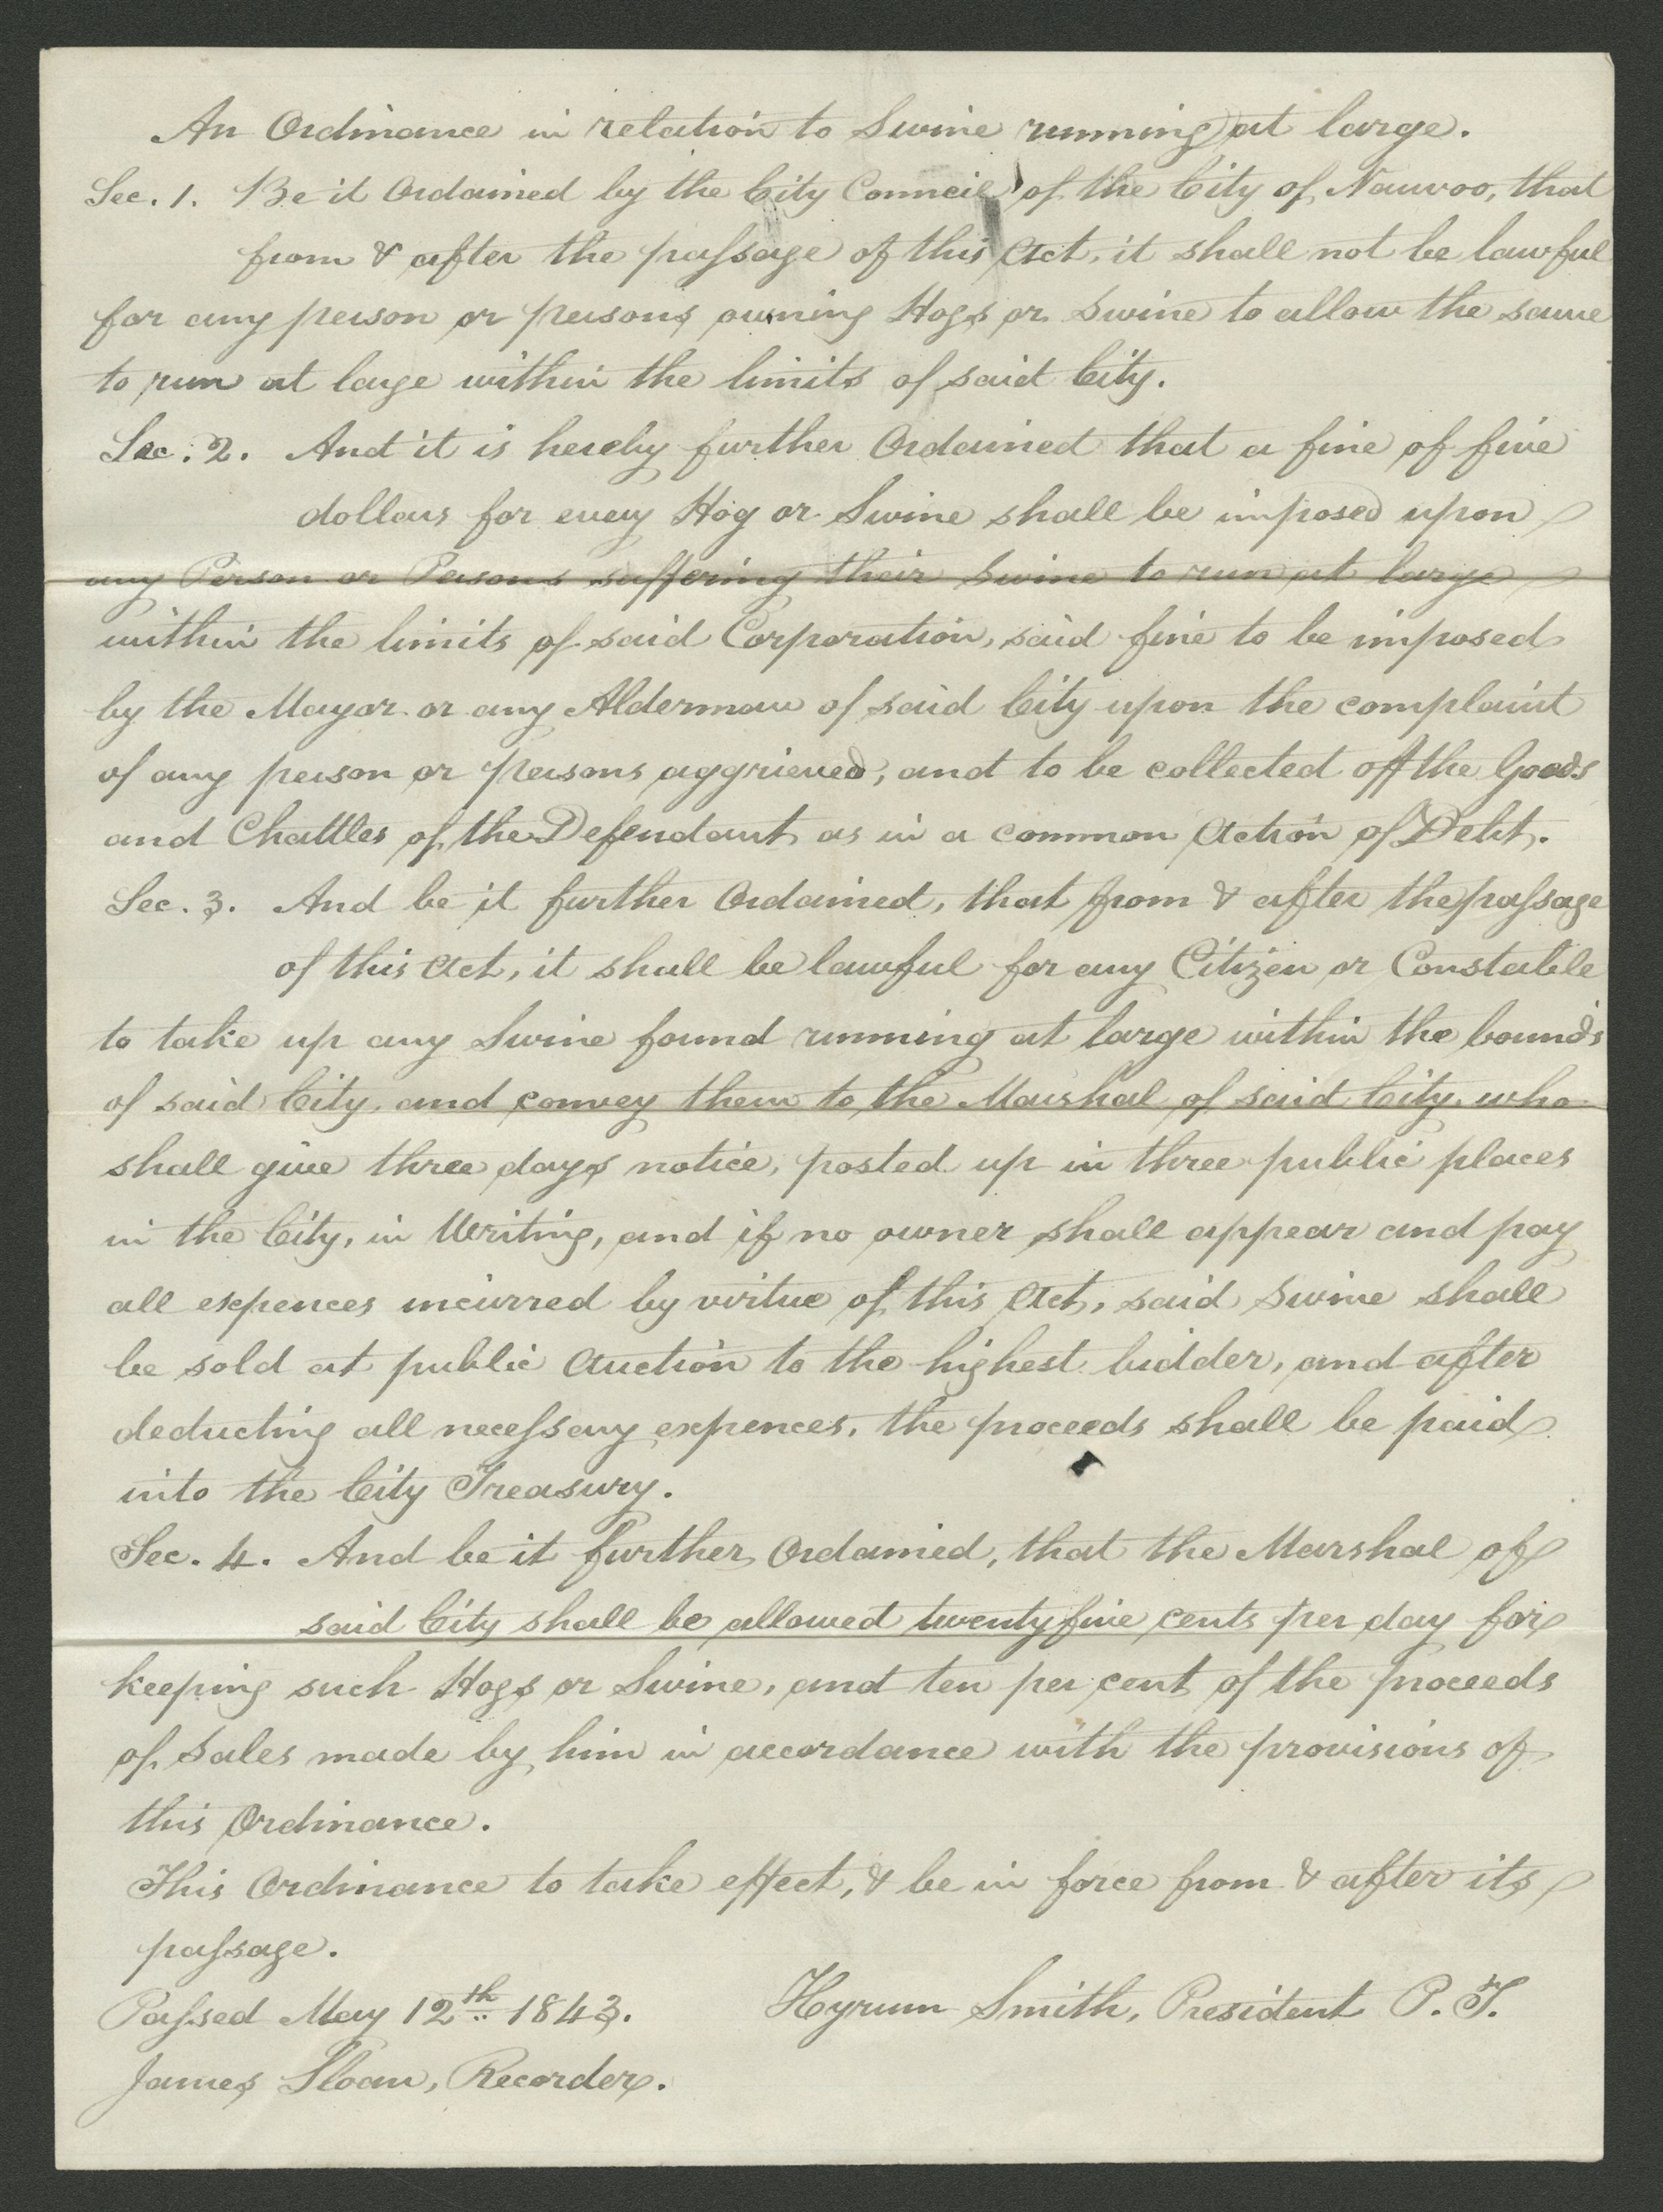 An Ordinance in relation to Swine running at large.
Sec. 1. Be it Ordained by the City Council of the City of Nauvoo, that
from & after the paſsage of this Act, it shall not be lawful
for any person or persons owning Hogs or Swine to allow the same
to run at large within the limits of said City.
Sec. 2. And it is hereby further Ordained that a fine of five
dollars for every Hog or Swine shall be imposed upon
any Person or Persons suffering their Swine to run at large
within the limits of said Corporation, said fine to be imposed
by the Mayor or any Alderman of said City upon the complaint
of any person or persons aggrieved, and to be collected off the Goods
and Chattles of the Defendant as in a common Action of Debt.
Sec. 3. And be it further Ordained, that from & after the paſsage
of this Act, it shall be lawful for any Citizen or Constable
to take up any Swine found running at large within the bounds
of said City, and convey them to the Marshal of said City, who
shall give three days notice, posted up in three public places
in the City, in Writing, and if no owner shall appear and pay
all expences incurred by virtue of this Act, said Swine shall
be sold at public Auction to the highest bidder, and after
deducting all neceſsary expences, the proceeds shall be paid
into the City Treasury.
Sec. 4. And be it further Ordained, that the Marshal of
said City shall be allowed twenty five cents per day for
keeping such Hogs or Swine, and ten per cent of the proceeds
of Sales made by him in accordance with the provisions of
this Ordinance.
This Ordinance to take effect, & be in force from & after its
paſsage.
Paſsed May 12th 1843. Hyrum Smith, President P. T.
James Sloan, Recorder.